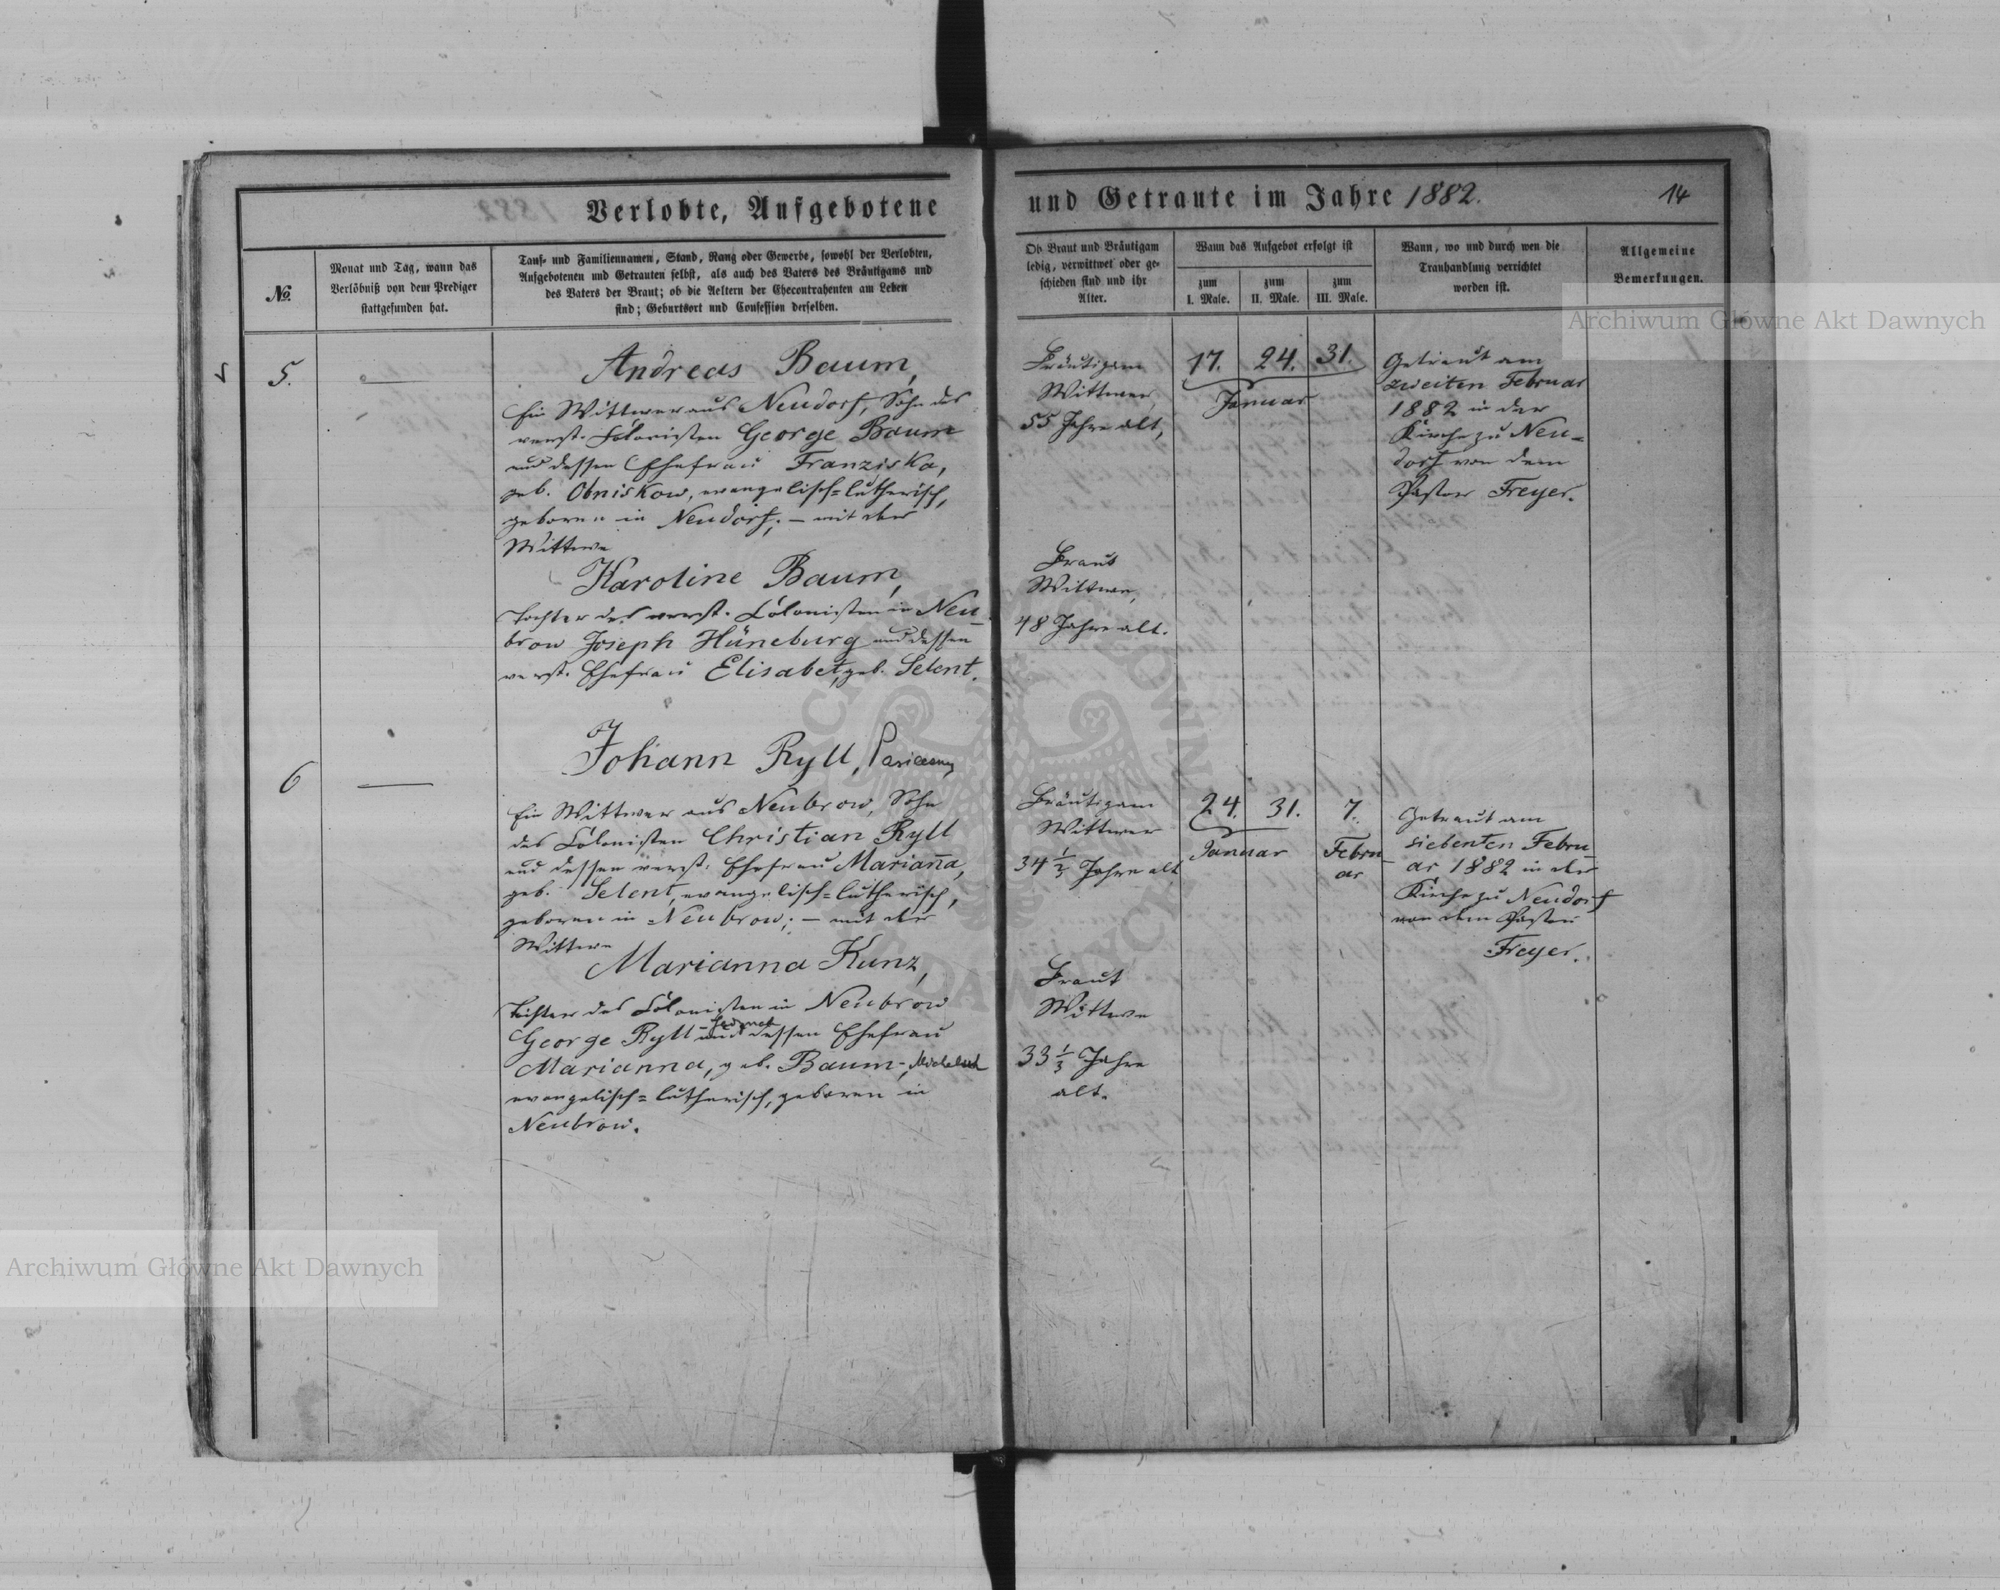 Verlobte, Aufgebotene
und Getraute im Jahre 1882.
14
No.
Monat und Tag, wann das
Verlöbniß von dem Prediger
stattgefunden hat.
Tauf- und Familiennamen, Stand, Rang oder Gewerbe, sowohl der Verlobten,
Aufgebotenen und Getrauten selbst, als auch des Vaters des Bräutigams und
des Vaters der Braut; ob die Aeltern der Ehecontrahenten am Leben
sind; Geburtsort und Confession derselben.
Ob Braut und Bräutigam
ledig, verwittwet oder ge-
schieden sind und ihr
Alter.
Wann das Aufgebot erfolgt ist
zum
I. Male.
zum
II. Male.
zum
III. Male.
Wann, wo und durch wen die
Trauhandlung verrichtet
worden ist.
Allgemeine
Bemerkungen.
5.
Andreas Baum,
Ein Wittwer aus Neudorf, Sohn des
verst. Colonisten George Baum
und dessen Ehefrau Franziska,
geb. Obniskow, evangelisch=lutherisch,
geboren in Neudorf; – mit der
Wittwe
Karoline Baum,
Tochter des verst. Colonisten in Neu-
brow Joseph Hüneburg und dessen
verst. Ehefrau Elisabet, geb. Selent.
Bräutigam
Wittwer,
55 Jahre alt,
Braut
Wittwe,
48 Jahre alt.
17. 24. 31.
Januar
Getraut am
zweiten Februar
1882 in der
Kirche zu Neu=
dorf von dem
Pastor Freyer.
6
Johann Ryll,
Ein Wittwer aus Neubrow, Sohn
des Colonisten Christian Ryll
und dessen verst. Ehefrau Marianna,
geb. Selent, evangelisch=lutherisch,
geboren in Neubrow; – mit der
Wittwe
Marianna Kunz,
Tochter des Colonisten in Neubrow
George Ryll und dessen Ehefrau
Marianna, geb. Baum
evangelisch=lutherisch, geboren in
Neubrow.
Bräutigam
Wittwer
34 1/3 Jahre alt
Braut
Wittwe
33 1/3 Jahre
alt.
24. 31. 7.
Januar Febru-
ar
Getraut am
siebenten Febru-
ar 1882 in der
Kirche zu Neudorf
von dem Pastor
Freyer.
Archiwum Główne Akt Dawnych
Archiwum Główne Akt Dawnych